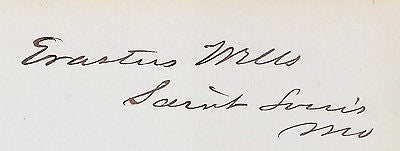 Erastus Wells
Saint Louis
Mo